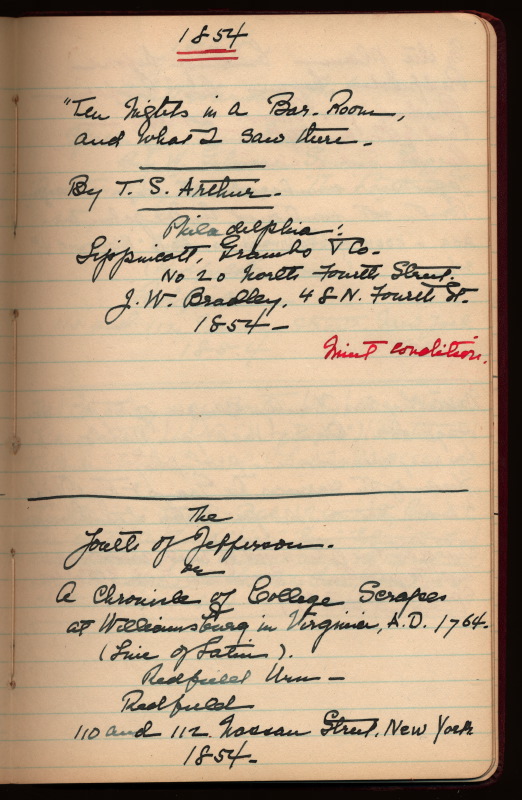 1854
"Ten Nights in a Bar-Room,
and What I Saw there.
By T. S. Arthur.
Philadelphia:
Lippincott, Grambo & Co.
No 20 North Fourth Street.
J. W. Bradley, 48 N. Fourth St.
1854—
Mint condition.
The
Youth of Jefferson.
or
A Chronicle of College Scrapes
at Williamsburg in Virginia, A.D. 1764.
( of Latin).
Redfield
Redfield
110 and 112 Nassau Street, New York
1854.